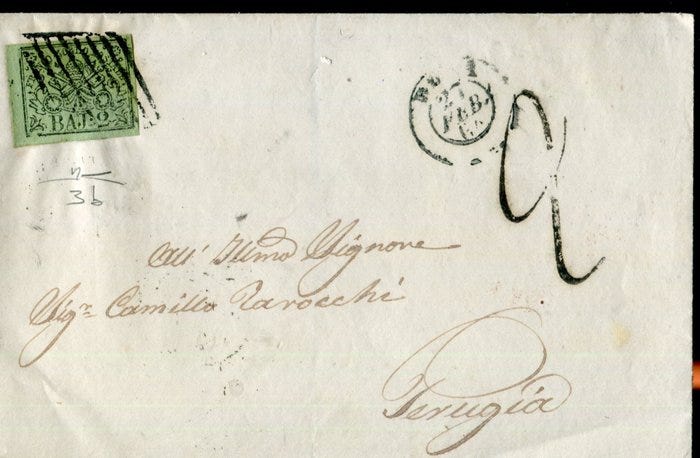 1
BAJ.
21
FEB.
2
3b
All' Illmo Signore
Sigr. Camillo Tarocchi
Perugia